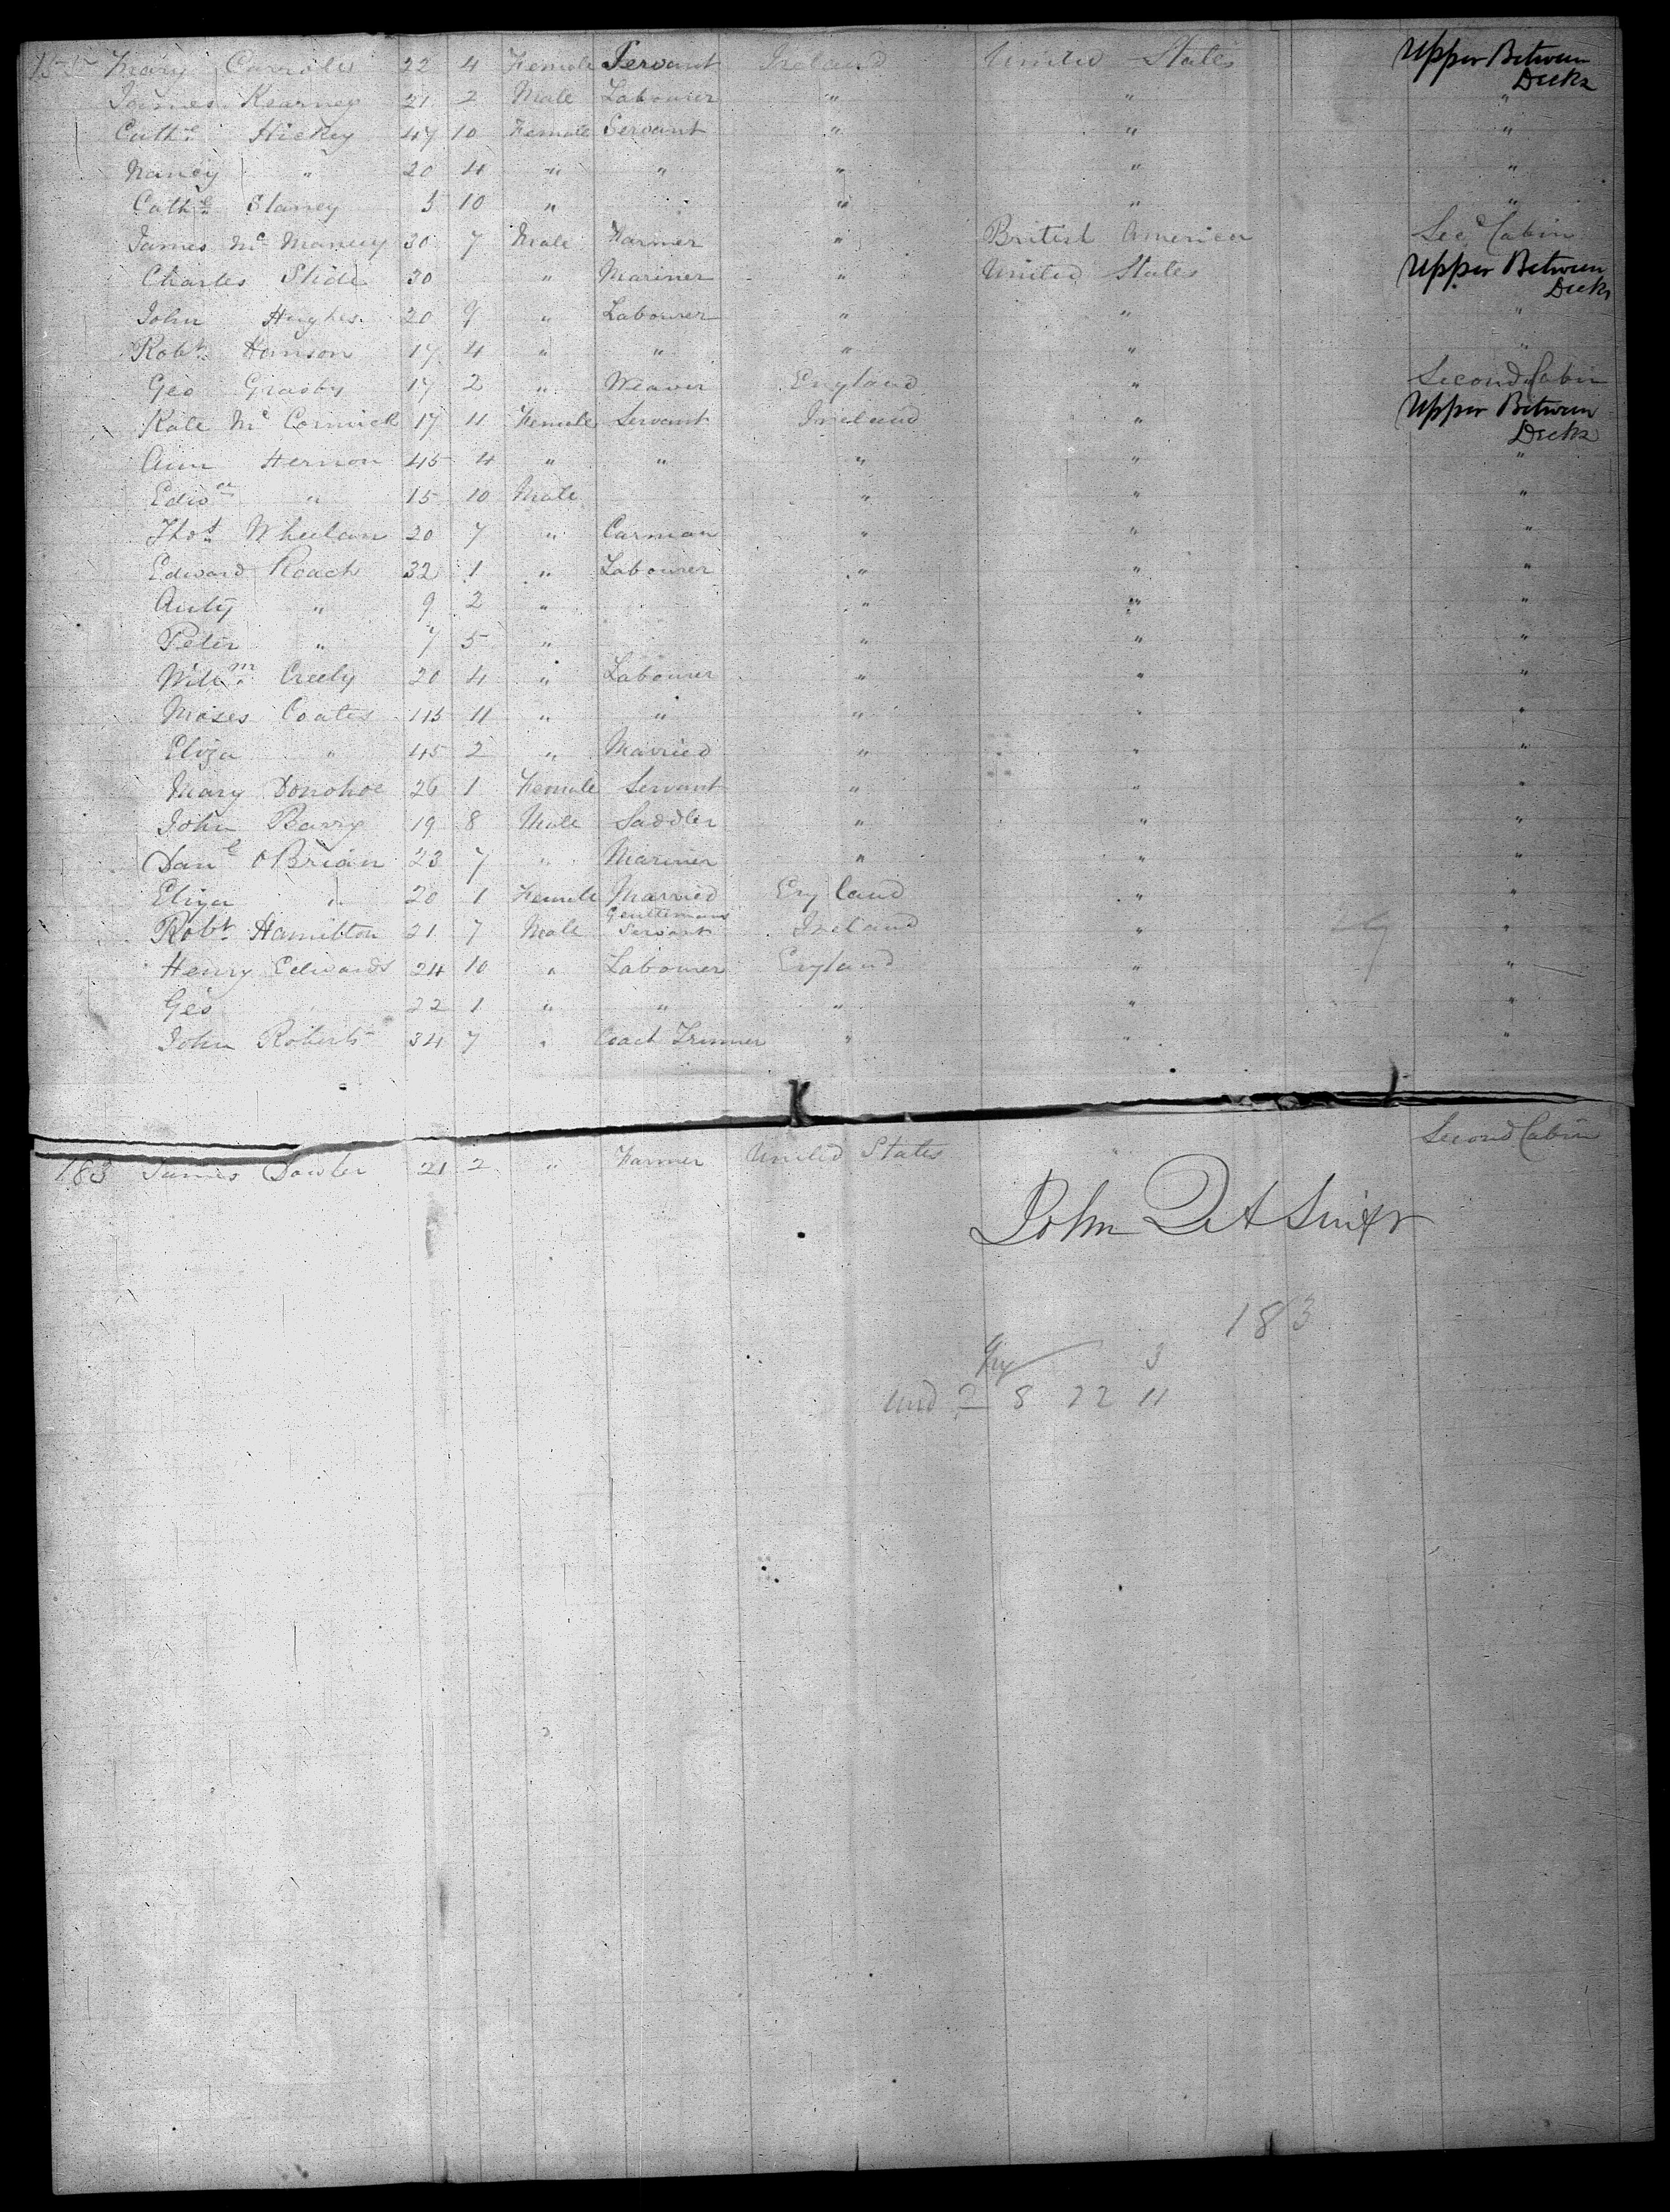 155 Mary Carroles 22 4 Female Servant Ireland United States Upper Between Decks
James Kearney 21 2 Male Labourer " " "
Cathe Hickey 47 10 Female Servant " " "
Nancy " 20 4 " " " " "
Cathe Slaney 5 10 " " " "
James Mc Manuy 30 7 Male Farmer " British America Secd Cabin
Charles Slide 30 " Mariner " United States Upper Between Decks
John Hughes 20 9 " Labourer " " "
Robt Hanson 17 4 " " " " "
Geo Grasby 17 2 " Weaver England " Second Cabin
Kate Mc Cormick 17 11 Female Servant Ireland " Upper Between Decks
Ann Hernon 45 4 " " " " "
Edwd " 15 10 Male " " "
Thos Wheelan 20 7 " Carman " " "
Edward Roach 32 1 " Labourer " " "
Anty " 9 2 " " " "
Peter " 7 5 " " " "
Willm Creely 20 4 " Labourer " " "
Moses Coates 45 11 " " " " "
Eliza " 45 2 " Married " " "
Mary Donohoe 26 1 Female Servant " " "
John Barry 19 8 Male Saddler " " "
Danl OBrian 23 7 " Mariner " " "
Eliza " 20 1 Female Married England " "
Robt Hamilton 21 7 Male Gentlemans Servant Ireland " "
Henry Edwards 24 10 " Labourer England " "
Geo 22 1 " " " " "
John Roberts 34 7 " Coach Trimmer " " "
183 James Dowler 21 2 " Farmer United States " Second Cabin
John
183
3
und 2 8 22 11